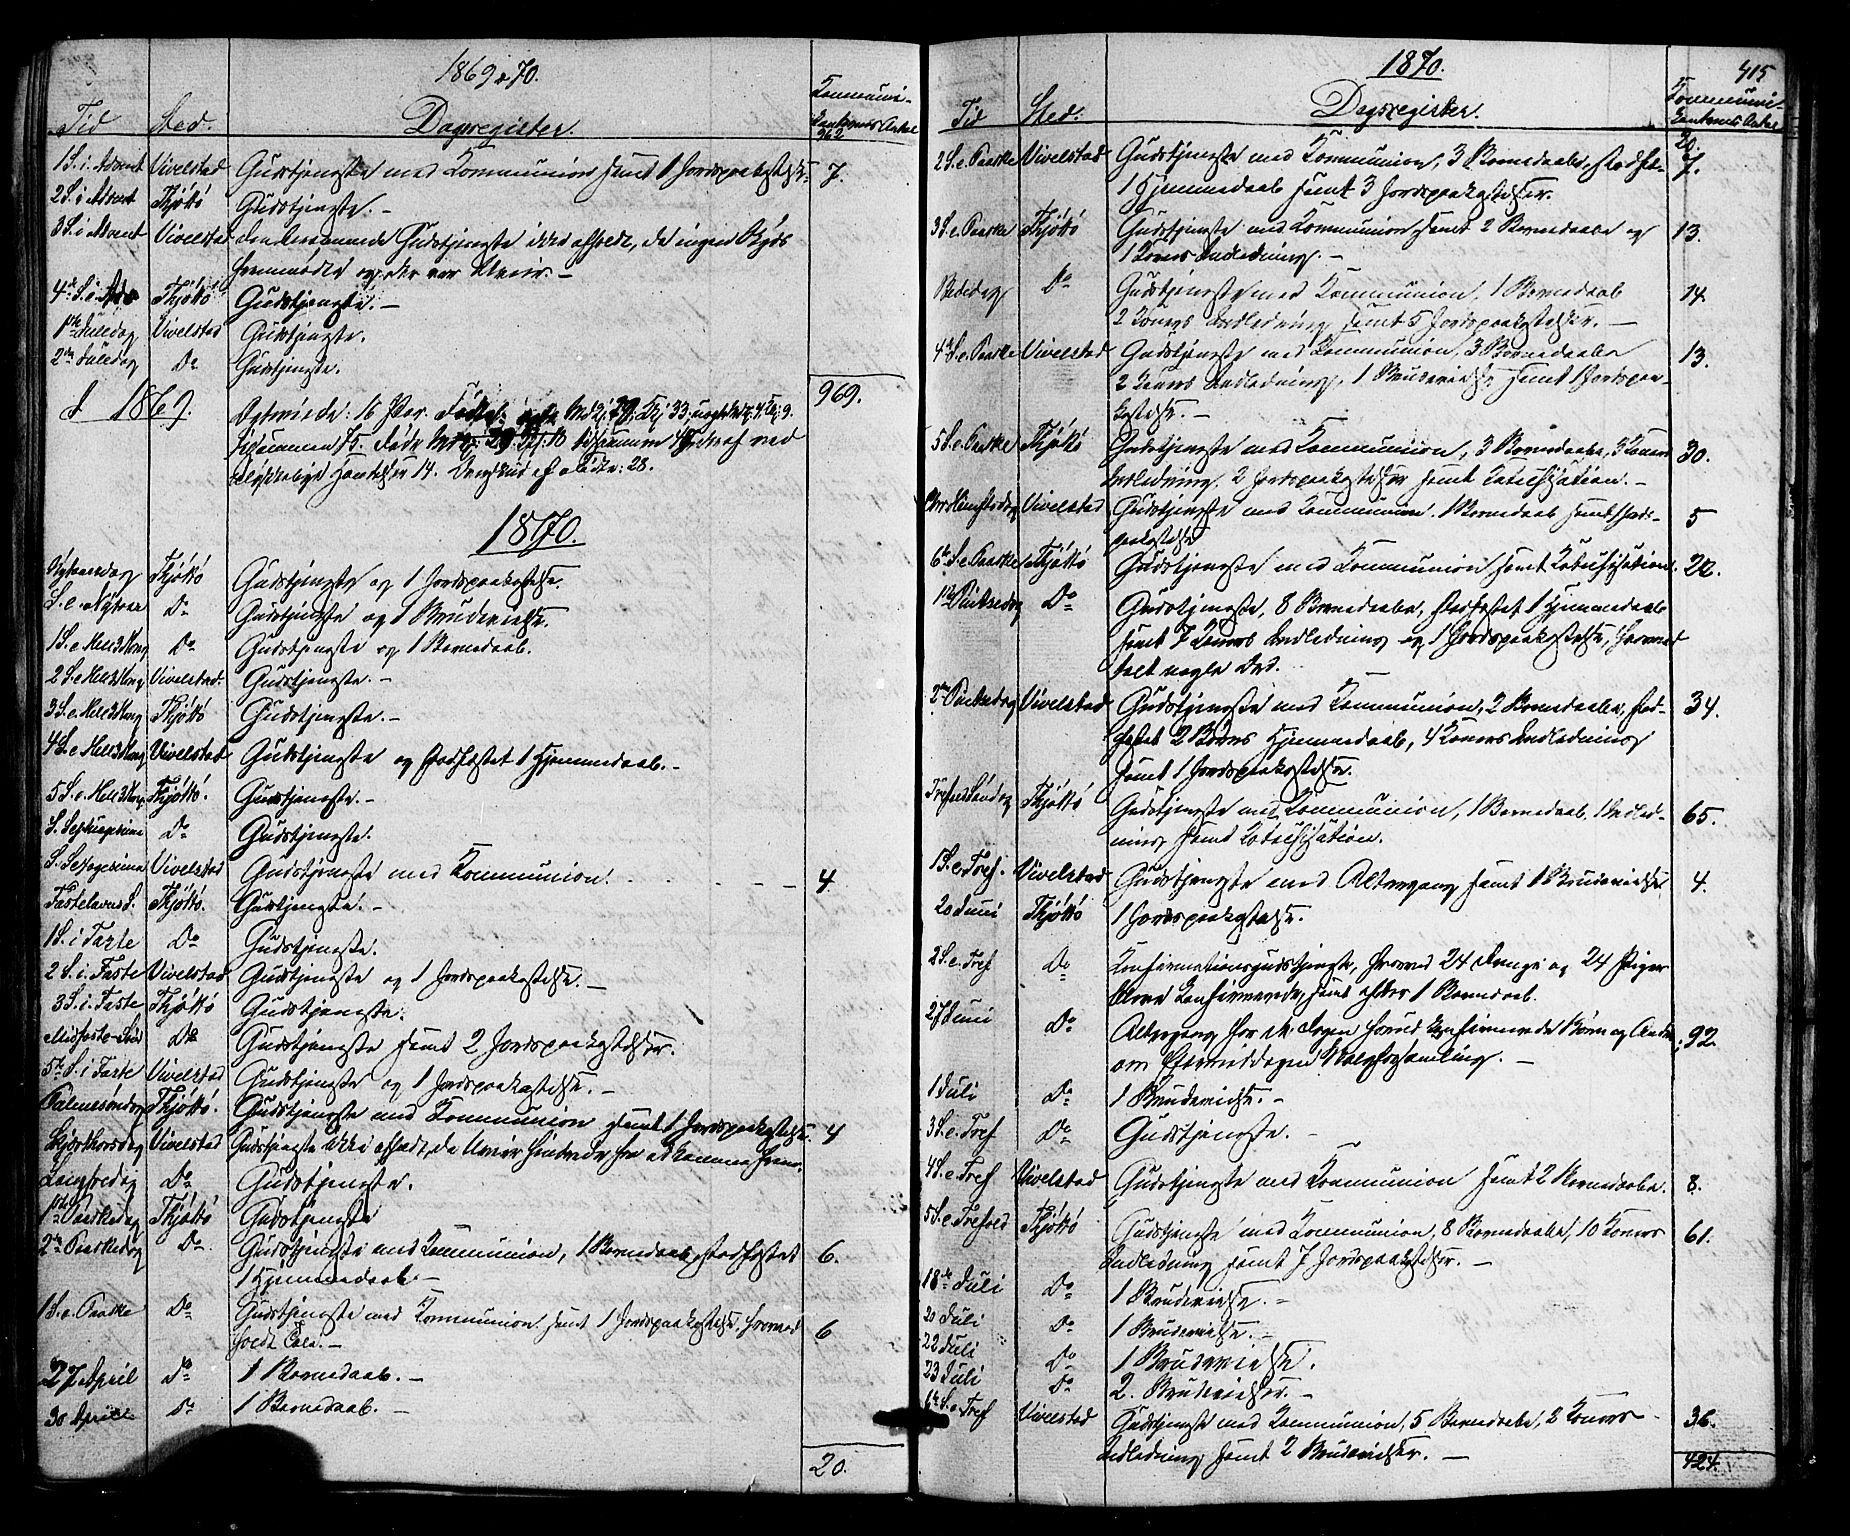 1869 & 70.
Tid Sted. Dagsregister. Kommuni-
kanternes Antal
962
1 S. i Advent Vivelstad Gudstjeneste med Kommunion samt 1 Jordspaakastelse 7.
2 S. i Advent Thjøttø Gudstjeneste. –
3 S. i Advent Vivelstad den berammede Gudstjeneste ikke afholdt, da ingen Folk
fremmødte og der var Uveir. –
4de S. i Adv Thjøttø Gudstjeneste. –
1ste Juledag Vivelstad Gudstjeneste.
2den Juledag Do Gudstjeneste.
969.
I 1869. Egteviede: 16 Par. Fødte
tilsammen 75. Døde
ulykkelige Hændelser 14. Overskud af Fødte: 28.
1870.
Nytaarsdag Thjøttø Gudstjeneste og 1 Jordspaakastelse.
S. e. Nytaar Do Gudstjeneste og 1 Brudevielse.
1 S. e. Hell 3 Kong Do Gudstjeneste og 1 Barnedaab.
2 S. e. Hell 3 Kong Vivelstad. Gudstjeneste. –
3 S. e. Hell 3 Kong Thjøttø Gudstjeneste. –
4 S. e. Hell 3 Kong Vivelstad Gudstjeneste og stadfæstet 1 Hjemmedaab. –
5 S. e. Hell 3 Kong Thjøttø. Gudstjeneste. –
S. Septuagesima Do Gudstjeneste.
S. Sexagesima Vivelstad Gudstjeneste med Kommunion. 4
Fastelavns S. Thjøttø. Gudstjeneste. –
1 S. i Faste Do Gudstjeneste.
2 S. i Faste Vivelstad Gudstjeneste og 1 Jordspaakastelse. –
3 S. i Faste Thjøttø Gudstjeneste.
Midfaste-Sønd Do Gudstjeneste samt 2 Jordspaakastelser.
5te S. i Faste Vivelstad Gudstjeneste og 1 Jordspaakastelse. –
Palmesøndag Thjøttø. Gudstjeneste med Kommunion samt 1 Jordspaakastelse. 4
Skjærthorsdag Vivelstad Gudstjeneste ikke afholdt, da Uveir hindrede fra at komme frem.
Langfredag Do Gudstjeneste.
1ste Paaskedag Thjøttø Gudstjeneste
2den Paaskedag Do Gudstjeneste med Kommunion, 1 Barnedaab, stadfæstet 6.
1 Hjemmedaab –
1 S. e. Paaske Do Gudstjeneste med Kommunion samt 1 Jordspaakastelse, hvorved
holdt Tale. – 6
27 April Do 1 Barnedaab. –
30 April Do 1 Barnedaab. –
20.
1870. 415
Tid Sted. Dagsregister. Kommuni-
kanternes Antal
20.
2 S. e. Paaske Vivelstad Gudstjeneste med Kommunion, 3 Barnedaabe, stadfæ- 7.
1 Hjemmedaab samt 3 Jordspaakastelser.
3 S. e. Paaske Thjøttø Gudstjeneste med Kommunion samt 2 Barnedaabe og 13.
1 Kones Indledning. –
Bededag Do Gudstjeneste med Kommunion, 1 Barnedaab 14.
2 Koners Indledning samt 5 Jordspaakastelser. –
4 S. e. Paaske Vivelstad Gudstjeneste med Kommunion, 3 Barnedaabe 13.
2 Koners Indledning, 1 Brudevielse samt 1 Jordspaa-
kastelse. –
5 S. e. Paaske Thjøttø Gudstjeneste med Kommunion, 3 Barnedaabe, 3 Koners 30.
Indledning, 2 Jordspaakastelser samt Katechisation. –
Chr. Himmelfartsdag Vivelstad Gudstjeneste med Kommunion. 1 Barnedaab samt 1 Jords- 5
paakastelse
6te S. e. Paaske Thjøttø Gudstjeneste med Kommunion samt Katechisation. 22.
1ste Pintsedag Do Gudstjeneste, 8 Barnedaabe, stadfæstet 1 Hjemmedaab
samt 7 Koners Indledning og 1 Jordspaakastelse, hvorved
talt nogle Ord.
2den Pintsedag Vivelstad Gudstjeneste med Kommunion, 2 Barnedaabe, stad- 34.
fæstet 2 Børns Hjemmedaab, 4 Koners Indledning
samt 1 Jordspaakastelse.
Trefold. Søndag Thjøttø Gudstjeneste med Kommunion, 1 Barnedaab, 1 Indled- 65.
ning samt Katechisation.
1 S. e. Tref. Vivelstad Gudstjeneste med Altergang samt 1 Brudevielse 4.
20 Juni Thjøttø 1 Jordspaakastelse.
2 S. e. Tref Do Konfirmationsgudstjeneste, hvorved 24 Drenge og 24 Piger
bleve konfirmerede, samt 1 Barnedaab.
27 Juni Do Altergang for de Dagen forud konfirmerede Børn og Andre 92.
om Eftermiddagen Valgforsamling. –
1 Juli Do 1 Brudevielse. –
3 S. e. Tref Do Gudstjeneste. –
4 S. e. Tref Vivelstad Gudstjeneste med Kommunion samt 2 Barnedaabe. 8.
5 S. e. Trefold Thjøttø Gudstjeneste med Kommunion, 8 Barnedaabe, 10 Koners 61.
Indledning samt 7 Jordspaakastelser. –
18de Juli Do 1 Brudevielse. –
20 Juli Do 1 Brudevielse. –
22 Juli Do 1 Brudevielse.
23 Juli Do 2. Brudevielser. –
6te S. e. Tref Vivelstad Gudstjeneste med Kommunion, 5 Barnedaabe, 2 Koners 36.
Indledning samt 2 Brudevielser. –
424.